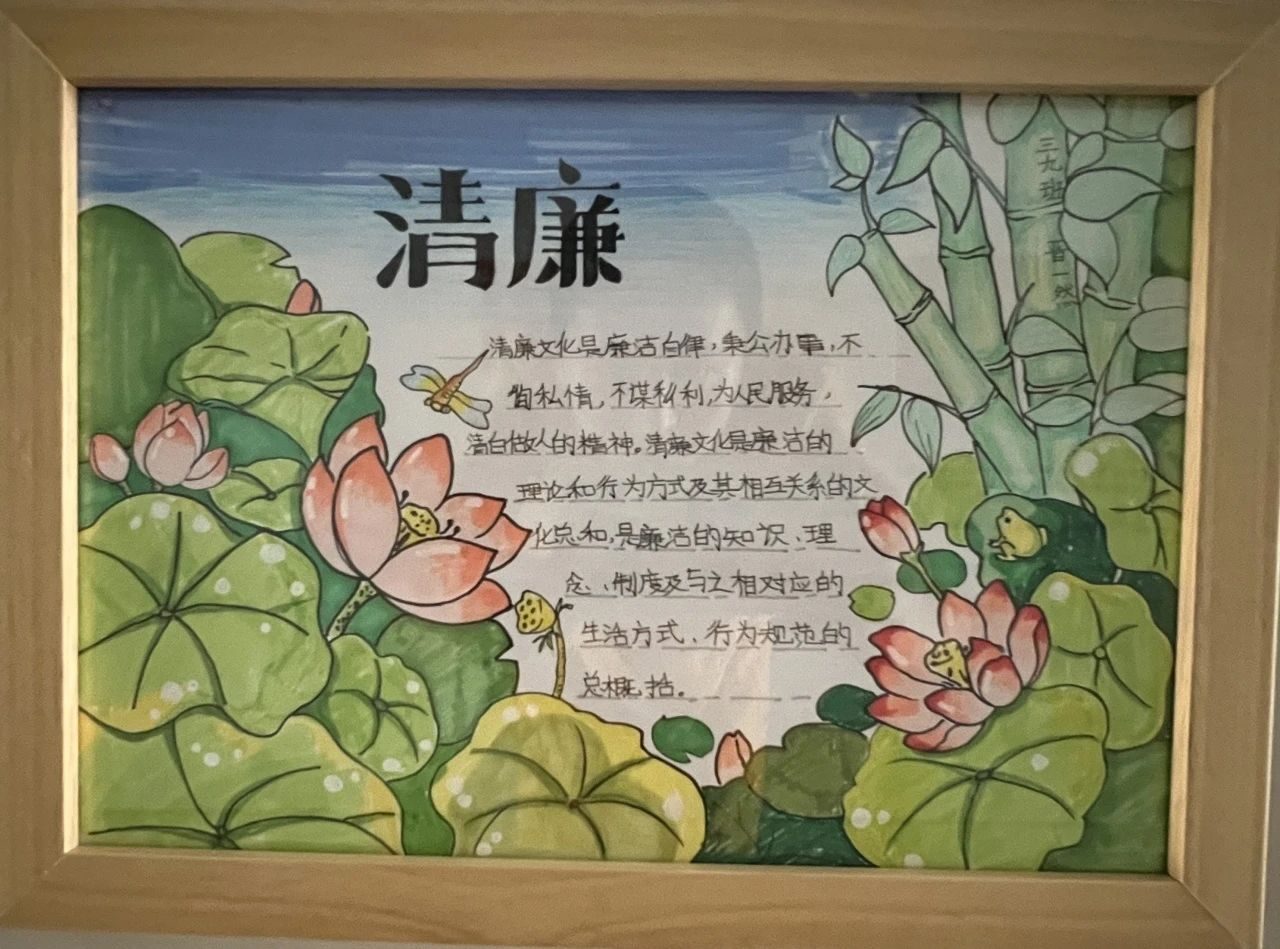 清廉
三九班
晋一然
清廉文化是廉洁自律，秉公办事，不
徇私情，不谋私利，为人民服务，
清白做人的精神。清廉文化是廉洁的
理论和行为方式及其相互关系的文
化总和，是廉洁的知识、理
念、制度及与之相对应的
生活方式、行为规范的
总概括。